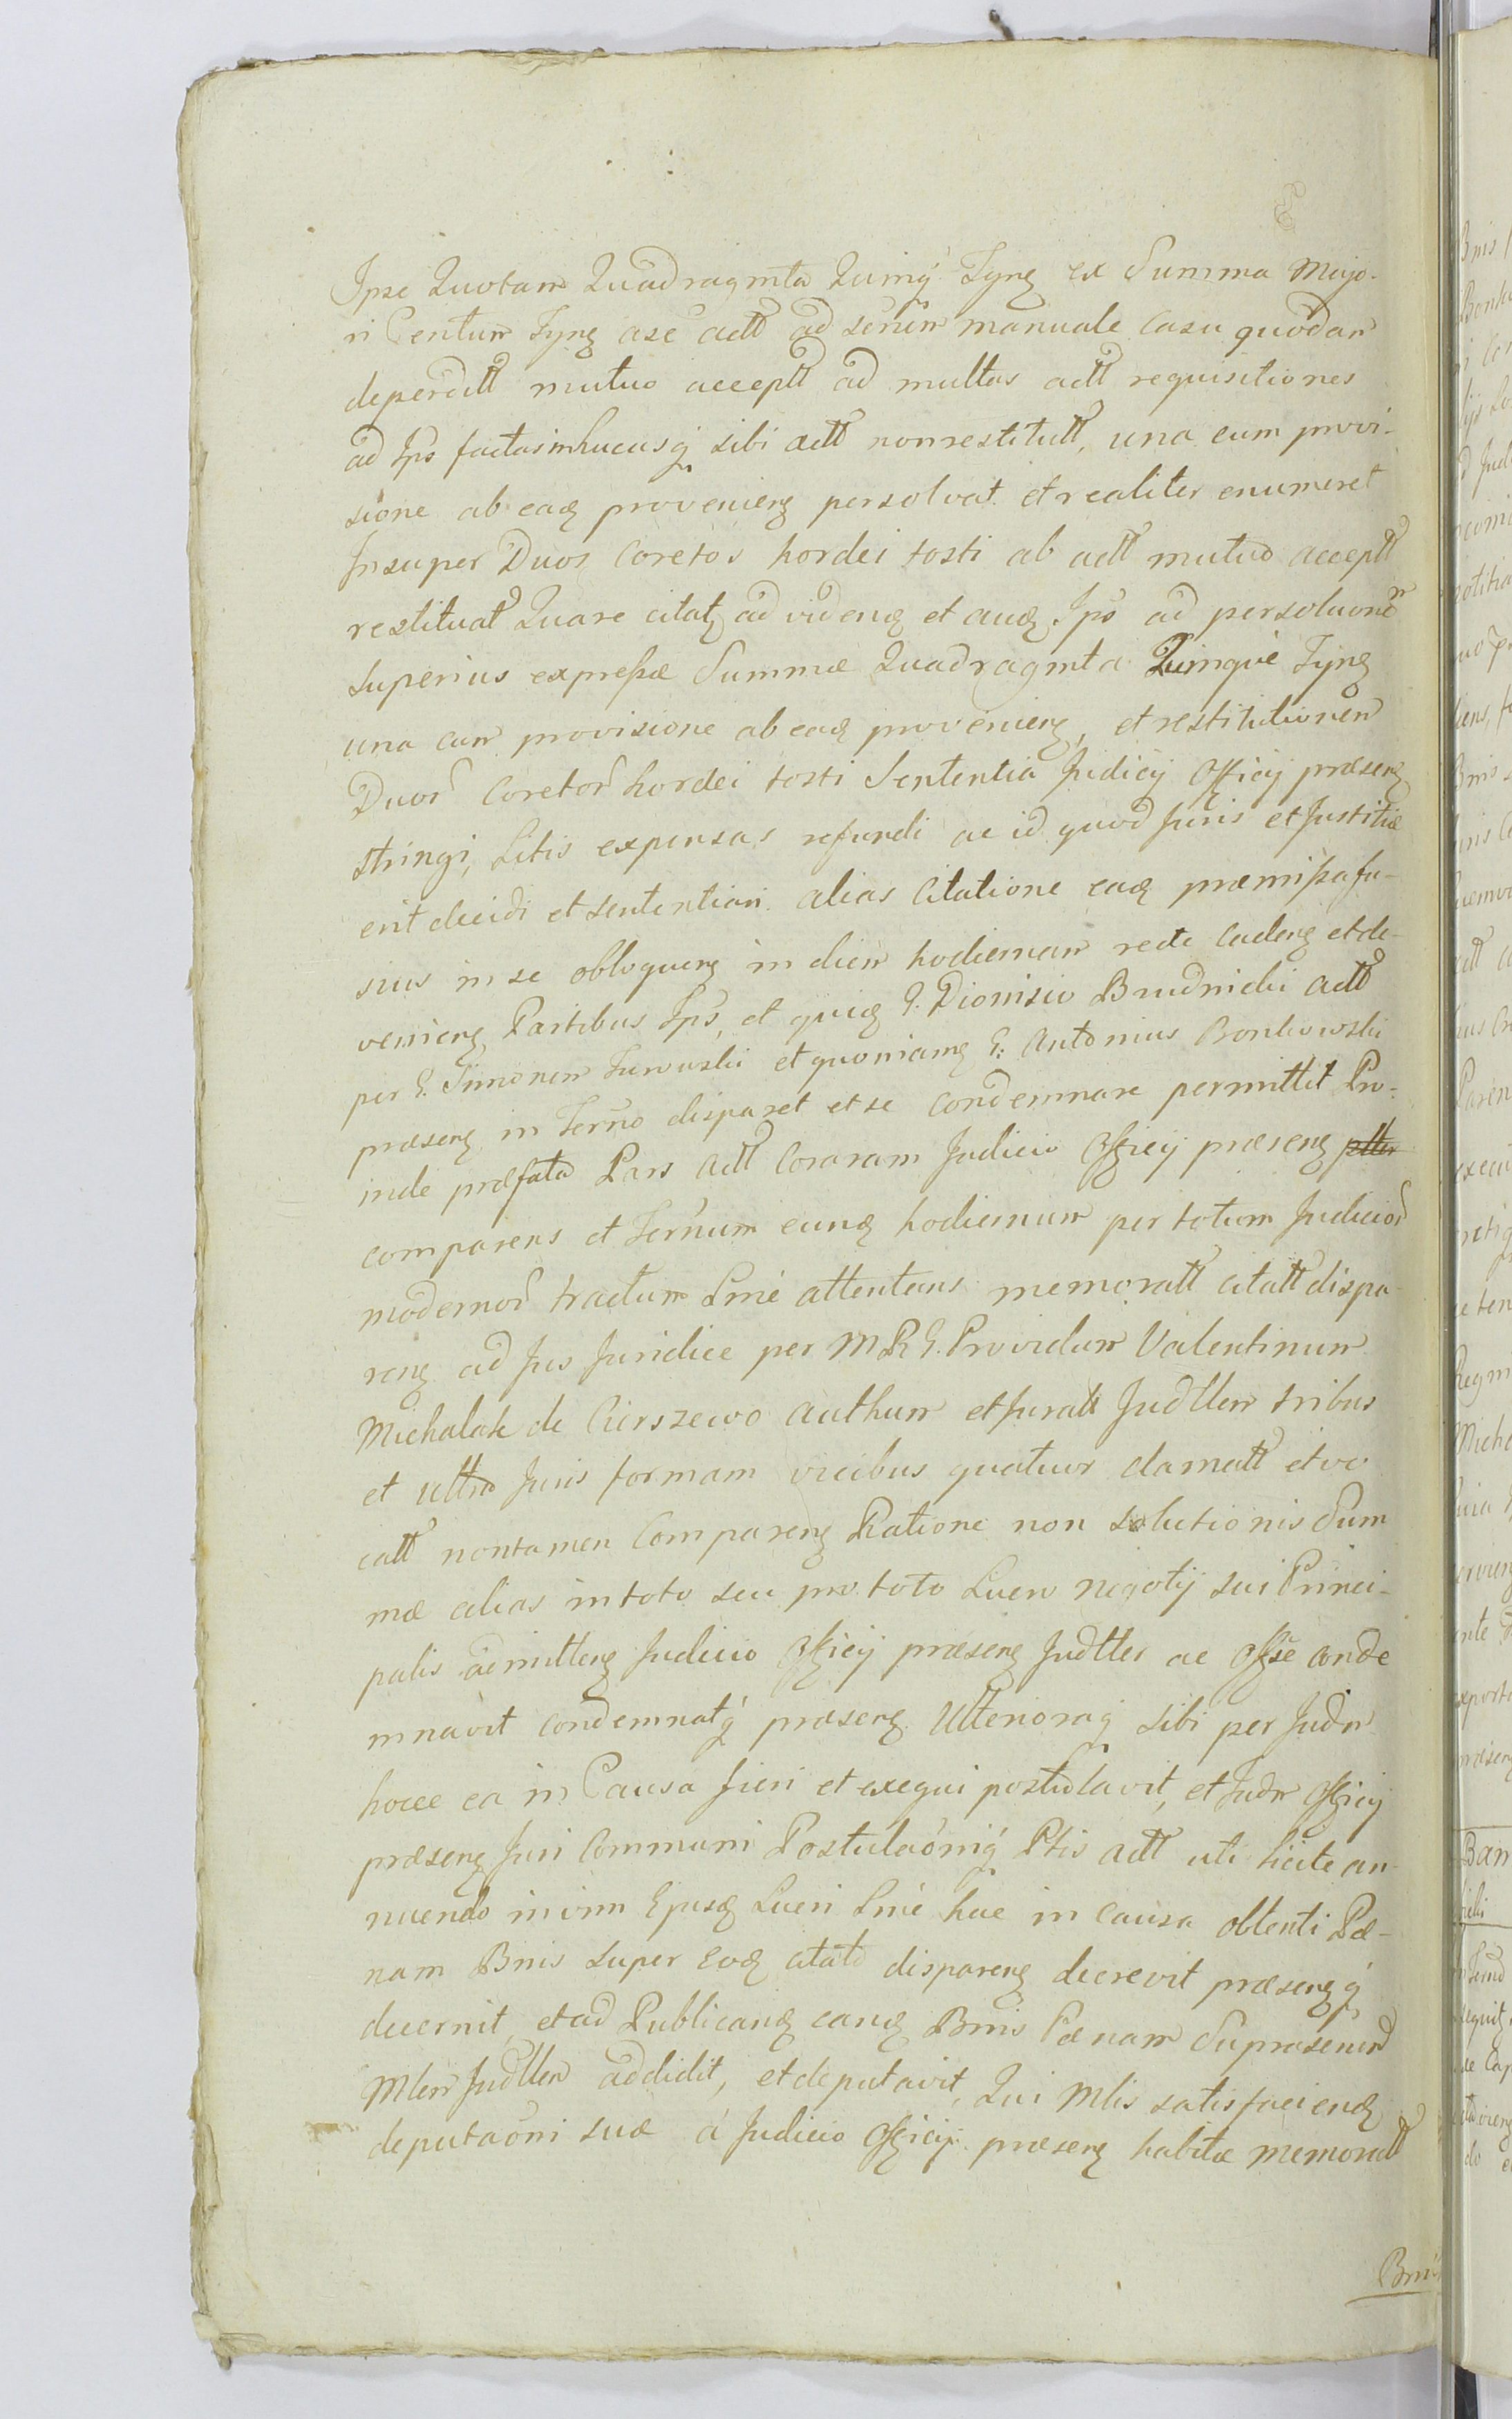 Ipse Quotam Quadragmta Quinq́ Tynę ex Summa Majo-
ri Centum Tynę ase actt ad senem manuale Casu quodam
deperditt mutuo acceptt ad multas actt requisitiones
ad Ips factas inhucusq́ sibi actt nonrestitutt, una cum provi-
sione ab eaꝫ provenieng persolvat et realiter enumeret
Insuper Duos Coretos hordei tosti ab actt mutuo acceptt
restituat Quare citatꝫ ad videnꝫ et auꝫ. Ips ad persolvonem
superius expressæ Summæ Quadragmta Quinque Tynę
una cum provisione ab eaꝫ provenieng, et restitutionem
Duor Coretor hordei tosti Sententia Judicij Officij præseng
stringi, Litis expensas refundi ac id quod Juris et Justitiæ
erit decidi et sententiari alias Citatione eaꝫ præmissa fu-
sius in se obloqueng in diem hodiernam recte Cadeng et de-
venieng Partibus Ips, et quiꝫ G. Dionisio Brudnicki actt
per G. Simonem Turowski et quoniamꝫ G: Antonius Bonkowski
præseng in Termo disparet et se Condemnare permittit Pro-
inde præfata Pars actt Coraram Judicio Officij præseng ptter
comparens et Termum eunꝫ hodiernum per totum Judicior
modernor tractum Pnie attentans memoratt citatt dispa-
reng ad Jus Juridice per MR G. Providum Valentinum
Michalak de Cierszewo authum et Juratt Judtlem tribus
et ultra Juris formam vicibus quatuor clamatt et vo
catt nontamen Compareng Ratione non solutionis Sum
mæ alias in toto seu pro toto Lucro negotij sui Princi-
palis admitteng Judicio Officij præseng Judtler ac Offse conde
mnavit condemnatq́ præseng. Ulterioraq́ sibi per Judm
hocce ea in Causa fieri et exequi postulavit, et Judm Officij
præseng Juri Communi Postulaoniq́ Ptis actt uti licite an-
nuendo in vim Ejusꝫ Lucri Pnie hac in Causa obtenti Pæ-
nam Bnis super Eoꝫ citato dispareng decrevit præsengq́
decernit, et ad Publicanꝫ eanꝫ Bnis Pænam Supræsenem
Mlem Judtlem addidit, et deputavit, Qui Mlis satisfaciendꝫ
deputaoni suæ á Judicio Officij præseng habitæ memoratt
Bnis